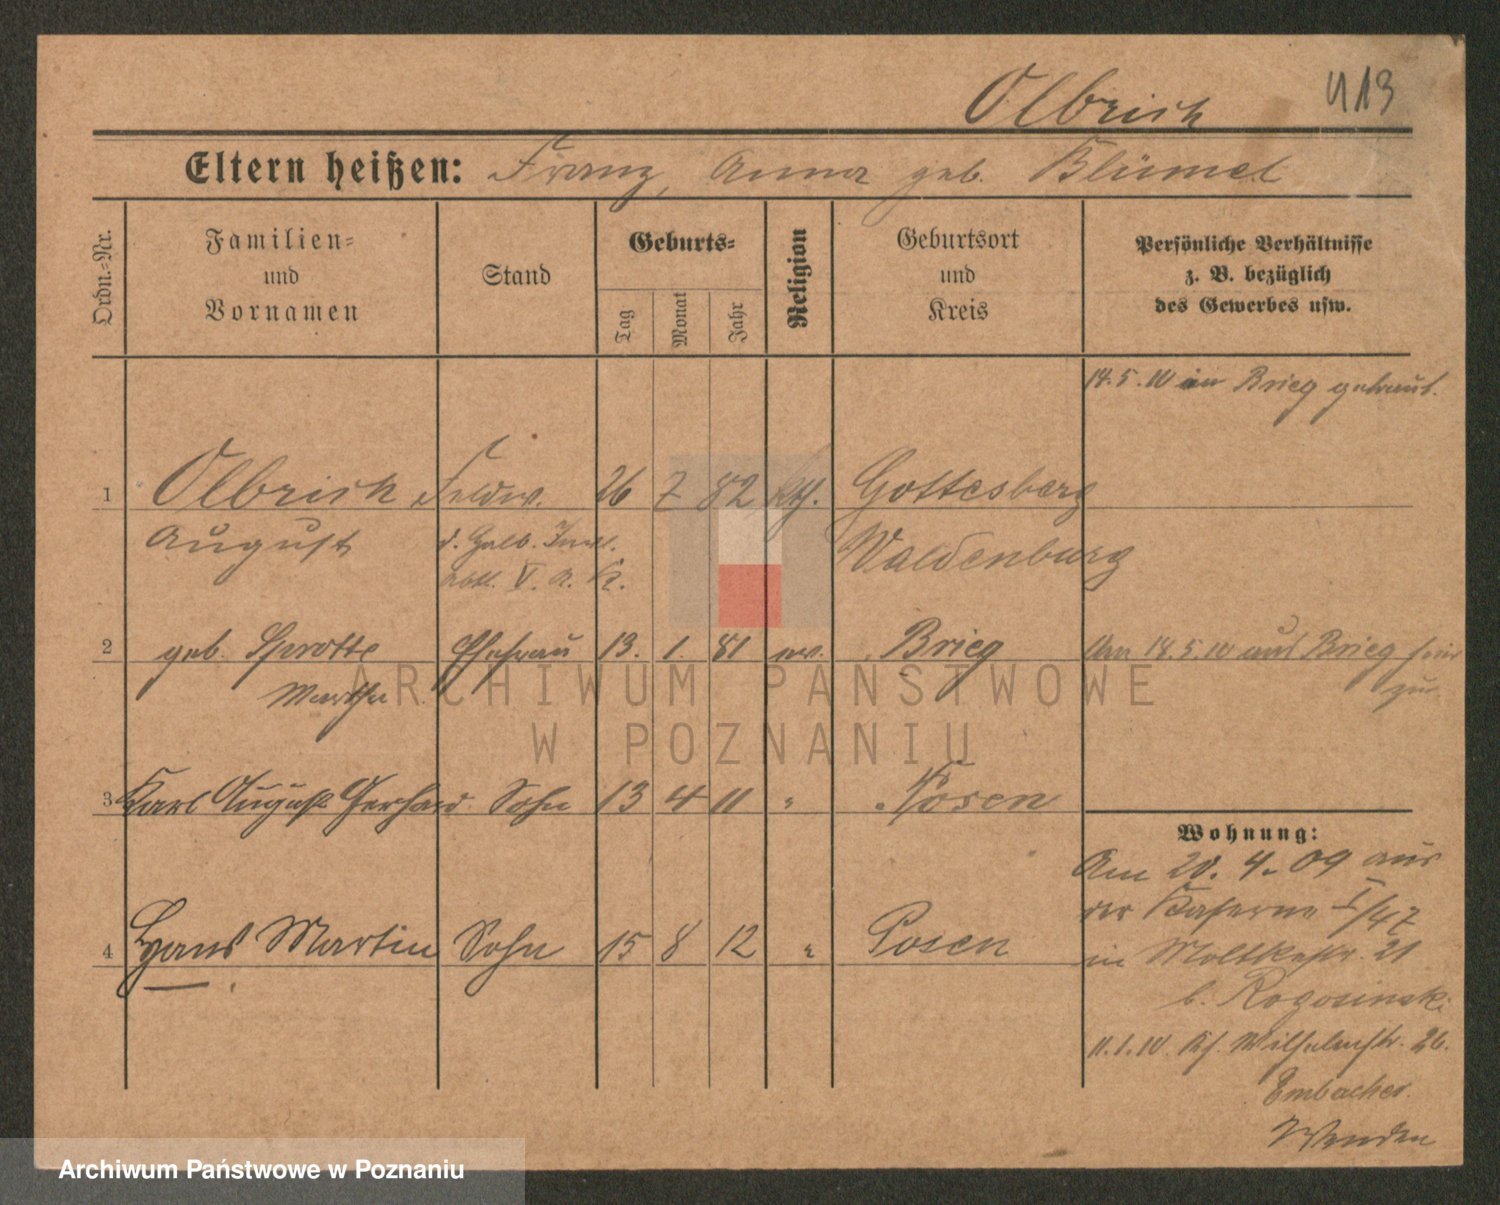 413
Olbrich
Eltern heißen: Franz, Anna geb. Blümel
Ordn.=Nr.
Familien=
und
Vornamen
Stand
Geburts=
Tag
Monat
Jahr
Religion
Geburtsort
und
Kreis
Persönliche Verhältnisse
z. B. bezüglich
des Gewerbes usw.
14.5.10 in Brieg getraut.
1 Olbrich Feldw. 26 7 82 kth. Gottesberg
August Waldenburg
V. A. K.
2 geb. Sprotte Ehefrau 13. 1. 81 ev. Brieg Am 18.5.10 aus Brieg hier
Martha zu
3 Karl August Gerhard Sohn 13 4 11 " Posen
Wohnung:
Am 20.4.09 aus
der Kaserne I/47
4 Hans Martin Sohn 15 8 12 " Posen
in Moltkestr. 21
b. Rogosinski
11.1.10. Wilhelmstr. 26.
Embacher
Wenden
ARCHIWUM PAŃSTWOWE
W POZNANIU
Archiwum Państwowe w Poznaniu